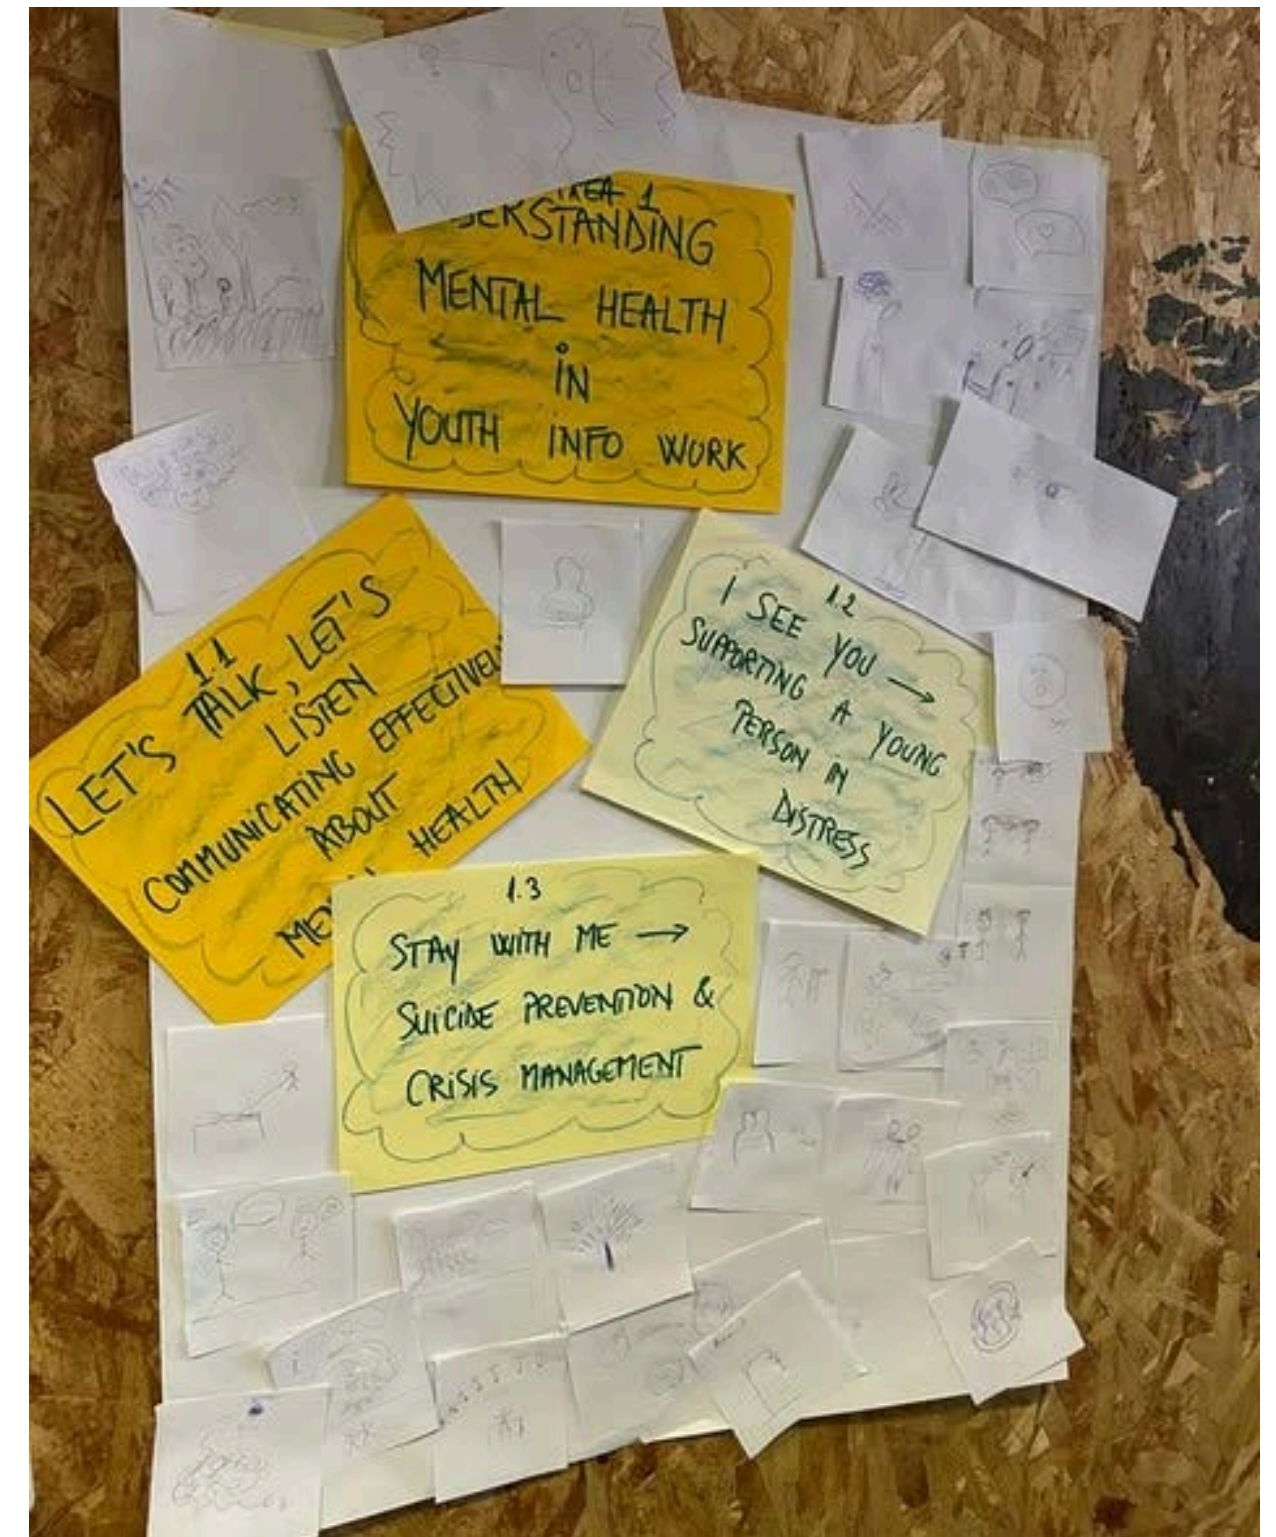 AREA 1
UNDERSTANDING
MENTAL HEALTH
IN
YOUTH INFO WORK
1.1
LET'S TALK, LET'S
LISTEN
COMMUNICATING EFFECTIVELY
ABOUT
MENTAL HEALTH
1.2
I SEE YOU →
SUPPORTING A YOUNG
PERSON IN
DISTRESS
1.3
STAY WITH ME →
SUICIDE PREVENTION &
CRISIS MANAGEMENT